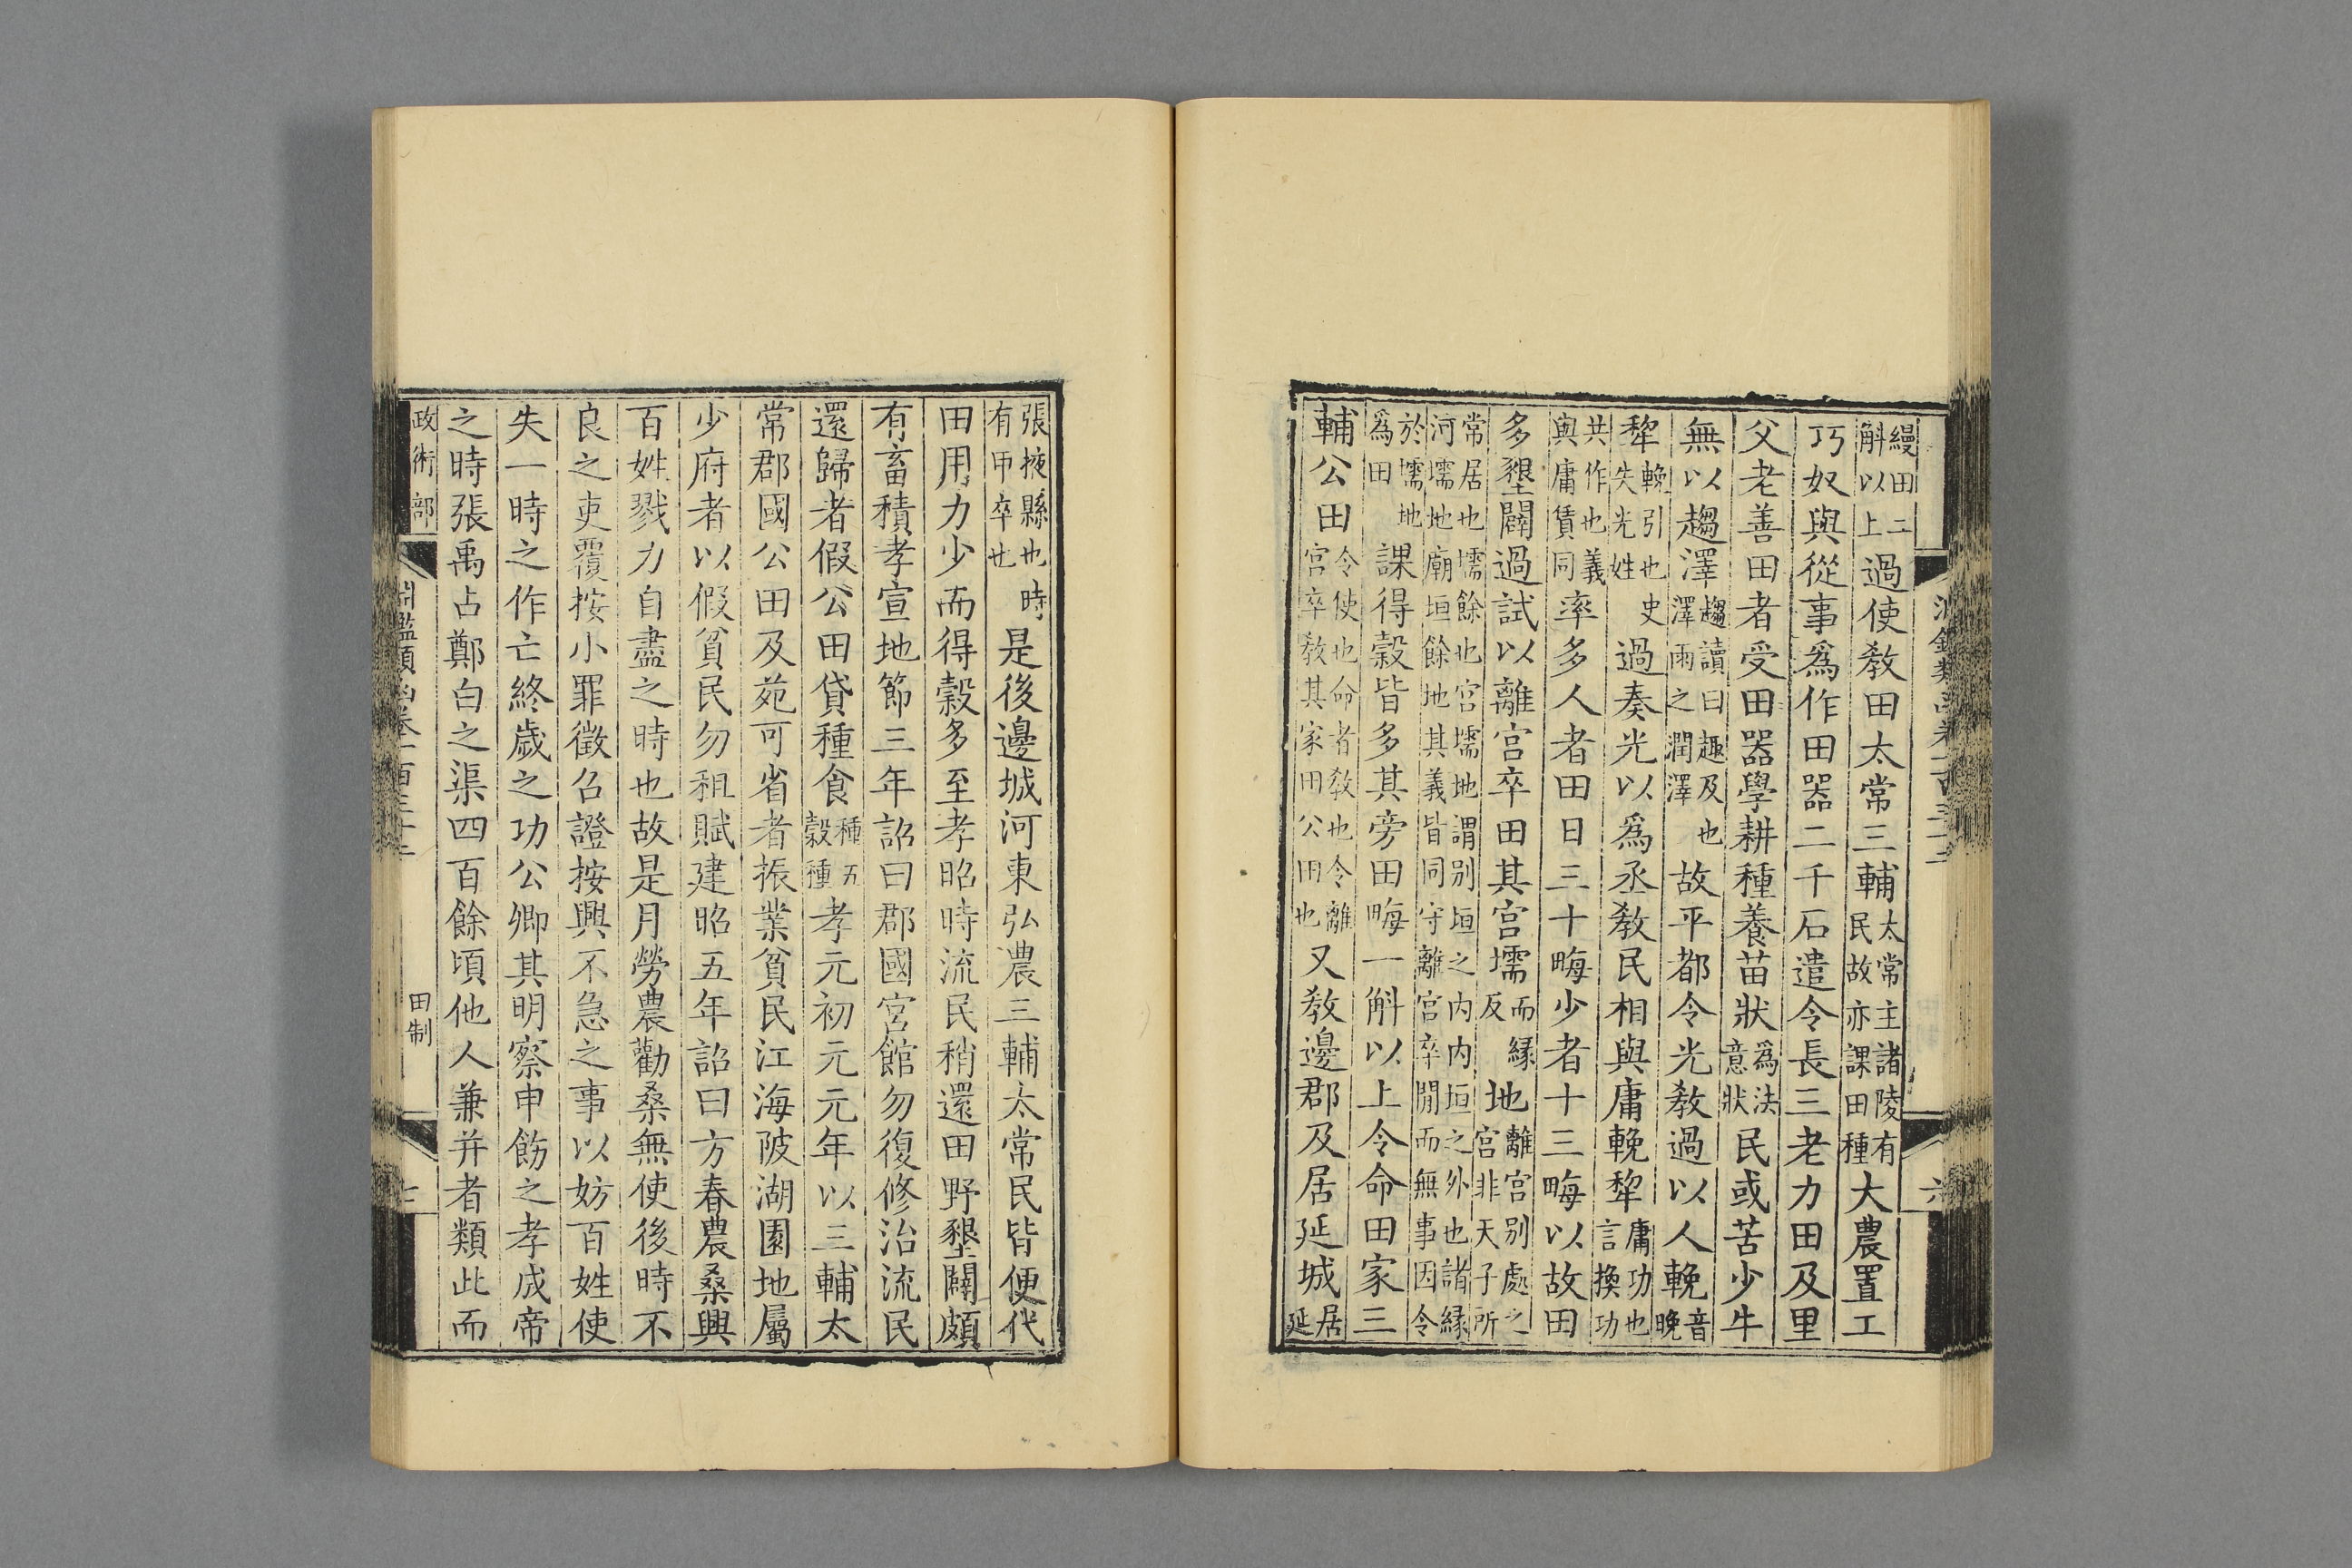 縵田二斛以上過使敎田太常三輔太常主諸陵有民故亦課田種大農置工
巧奴與從事爲作田器二千石遣令長三老力田及里
父老善田者受田器學耕種養苗狀爲法意狀民或苦少牛
無以趨澤趨讀曰趣及也澤雨之潤澤故平都令光敎過以人輓音晚
犂輓引也史失光姓過奏光以爲丞敎民相與庸輓犂庸功也言換功
共作也義與庸賃同率多人者田日三十畮少者十三畮以故田
多墾闢過試以離宮卒田其宮壖而緣反地離宮別處之宮非天子所
常居也壖餘也宮壖地謂別垣之內內垣之外也諸緣河壖地廟垣餘地其義皆同守離宮卒閒而無事因令
於壖地爲田課得穀皆多其旁田畮一斛以上令命田家三
輔公田令使也命者敎也令離宮卒敎其家田公田也又敎邊郡及居延城居延
張掖縣也時有甲卒也是後邊城河東弘農三輔太常民皆便代
田用力少而得穀多至孝昭時流民稍還田野墾闢頗
有畜積孝宣地節三年詔曰郡國宮館勿復修治流民
還歸者假公田貸種食種五穀種孝元初元元年以三輔太
常郡國公田及苑可省者振業貧民江海陂湖園地屬
少府者以假貧民勿租賦建昭五年詔曰方春農桑興
百姓戮力自盡之時也故是月勞農勸桑無使後時不
良之吏覆按小罪徵召證按興不急之事以妨百姓使
失一時之作亡終歲之功公卿其明察申飭之孝成帝
之時張禹占鄭白之渠四百餘頃他人兼并者類此而
政術部
淵鑑類函卷一百三十二
田制